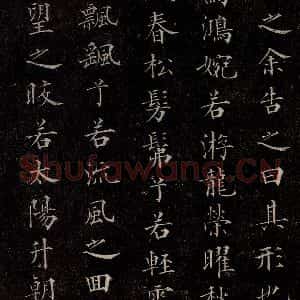 之余告之曰其形也
鴻婉若游龍榮曜秋
春松髣髴兮若輕雲
飄颻兮若流風之回
望之皎若太陽升朝
Shufawang.CN